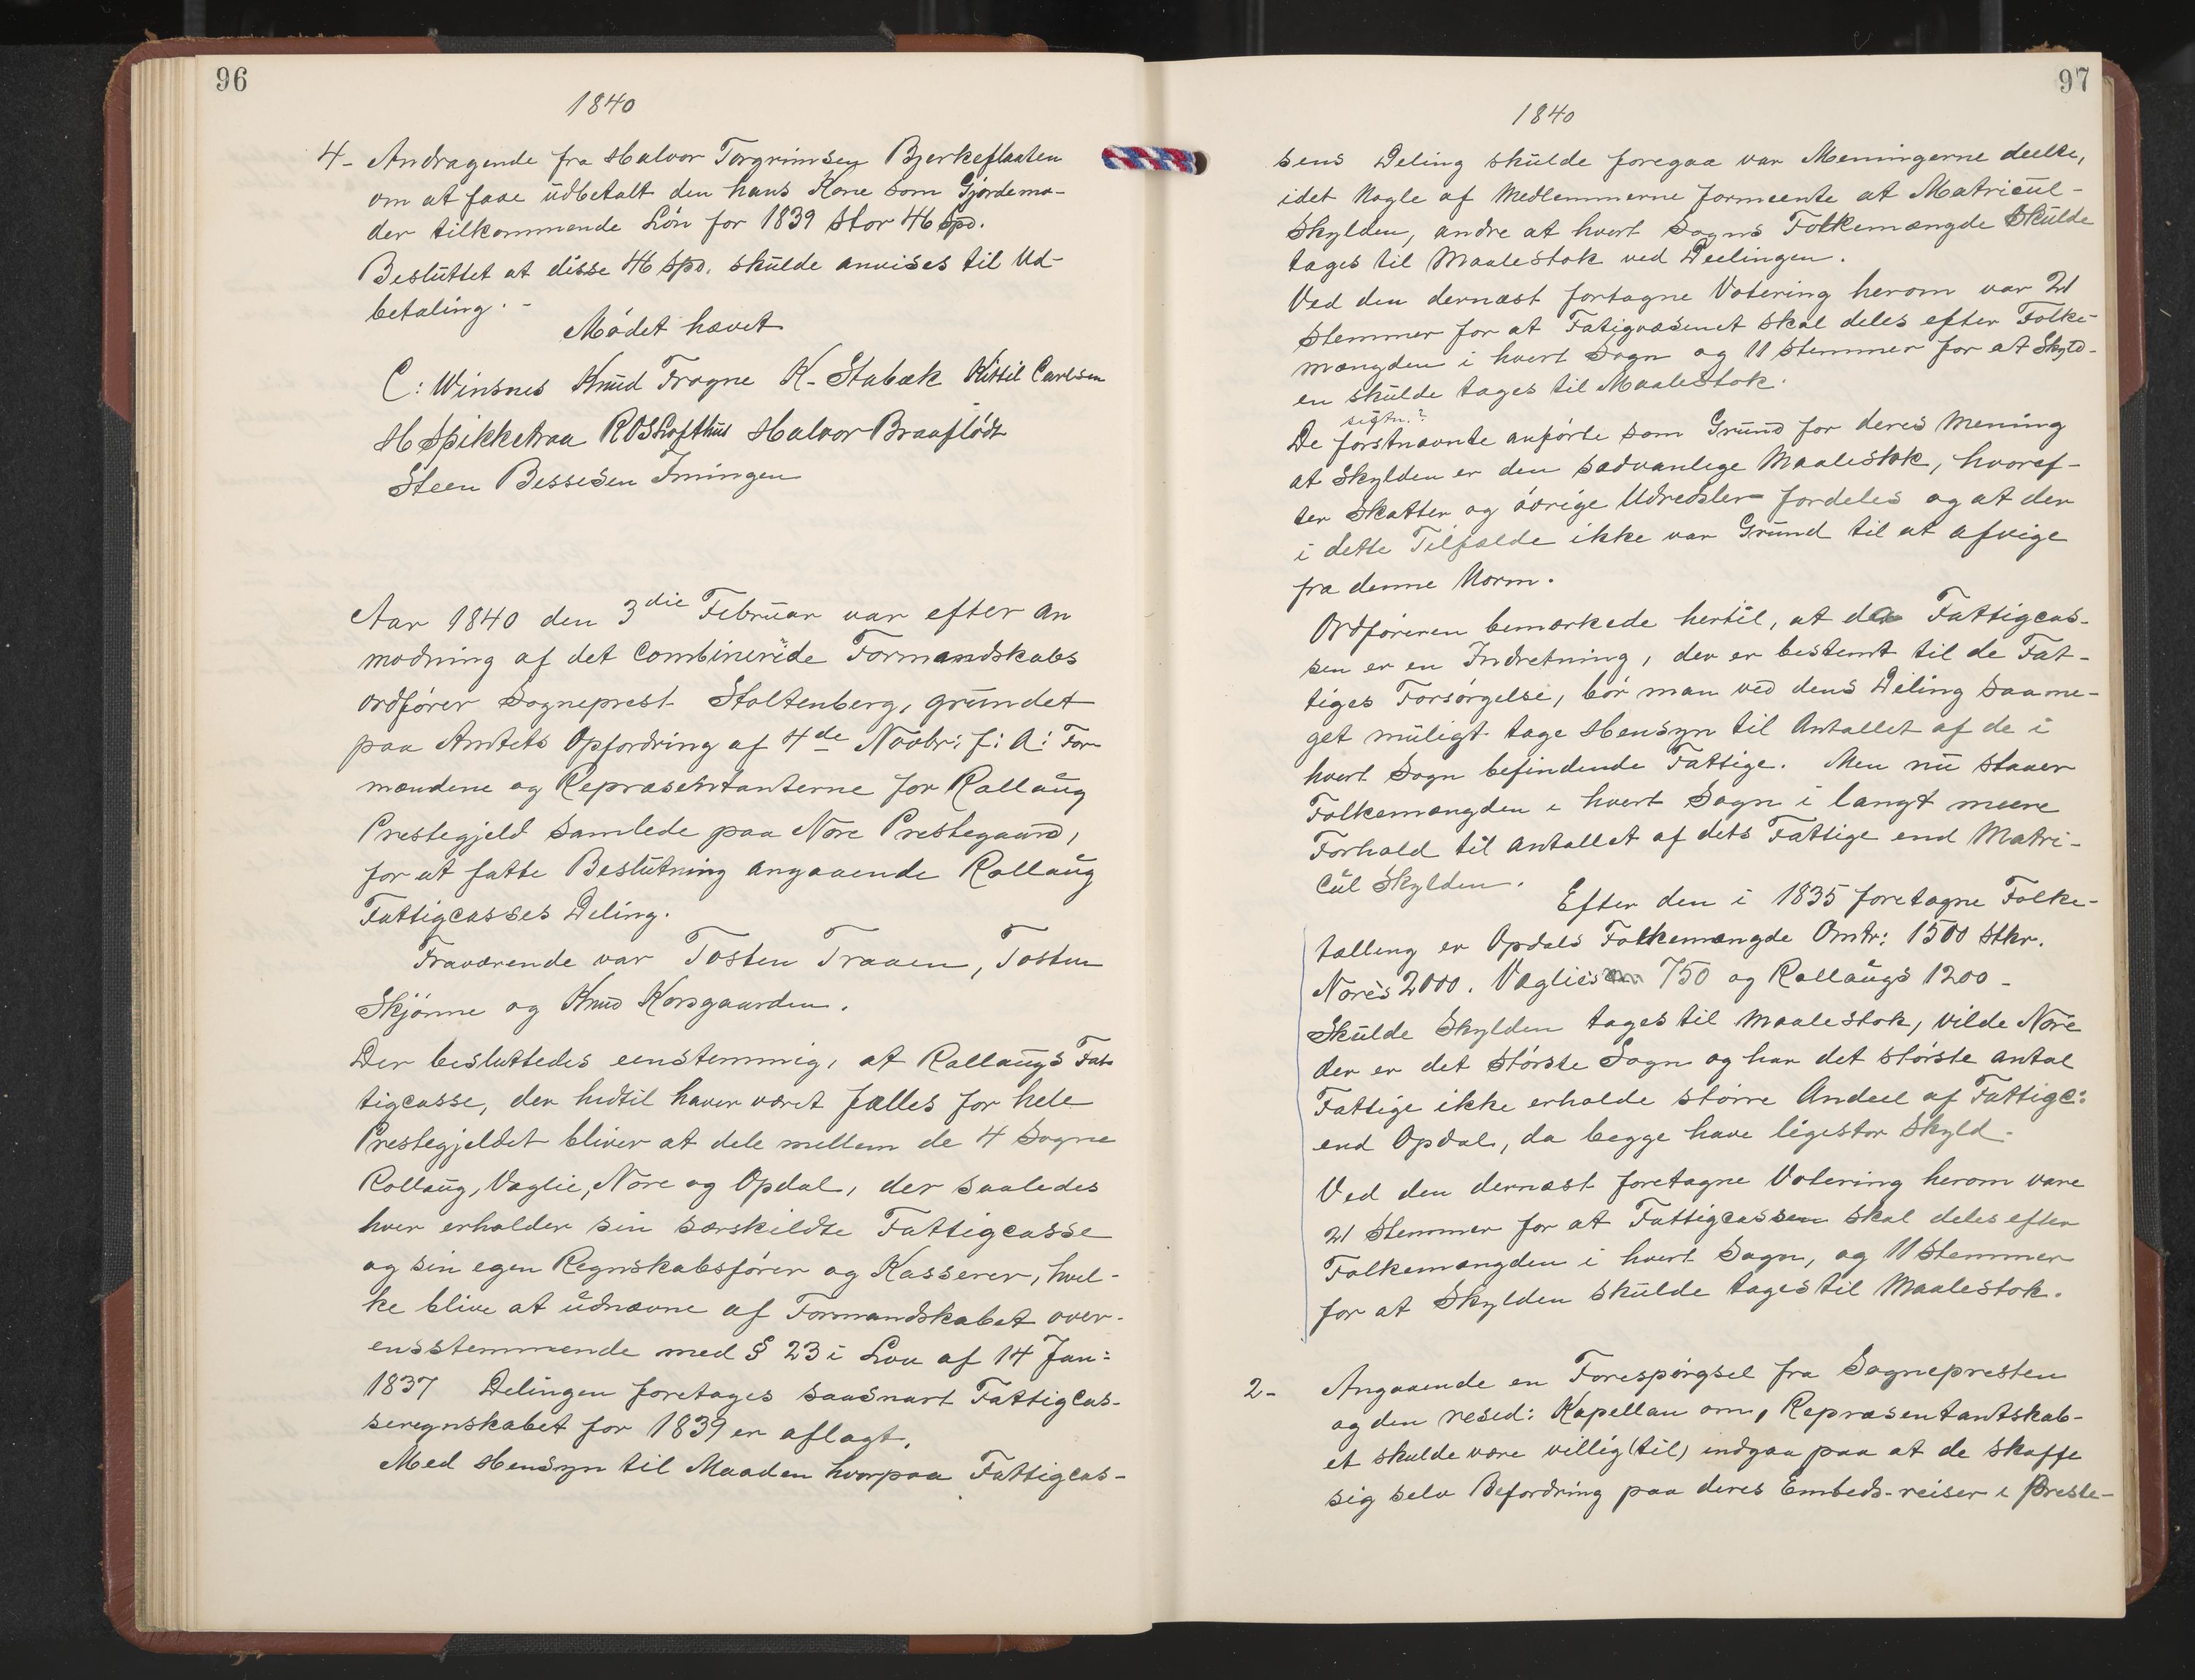 96
1840
4- Andragende fra Halvor Torgrimsen Bjerkeflaaten
om at faae udbetalt den hans Kone som Gjordemo-
der tilkommende Lön for 1839 stor 46 Spd.
Besluttet at disse 46 Spd. skulde anvises til Ud-
betaling. -
Mödet hævet
C: Winsnes Knud Frogne K- Stabæk Kittil Carlsen
H Spikketraa ROSLofthus Halvor Braaflödt
Steen Bessesen Imingen
Aar 1840 den 3die Februar var efter An
modning af det Combinerede Formandskabs
ordförer Sogneprest Stoltenberg, grundet
paa Amtets Opfordring af 4de Novbr: f: A: For
mændene og Repræsentanterne for Rollaug
Prestegjeld samlede paa Nore Prestegaard,
for at fatte Beslutning angaaende Rollaug
Fattigcasses Deling.
Fraværende var Tosten Traaen, Tosten
Skjönne og Knud Korsgaarden.
Der besluttedes eenstemmig, at Rollaugs Fat
tigcasse, der hidtil haver været fælles for hele
Prestegjeldet bliver at dele mellem de 4 Sogne
Rollaug, Vaglie, Nore og Opdal, der saaledes
hver erholder sin særskildte Fattigcasse
og sin egen Regnskabsförer og Kasserer, hvil-
ke blive at udnævne af Formandskabet over-
ensstemmende med § 23 i Lov af 14 Jan:
1837 Delingen foretages saasnart Fattigcas-
seregnskabet for 1839 er aflagt.
Med Hensyn til Maaden hvorpaa Fattigcas-
97
1840
sens Deling skulde foregaa var Meningerne deelte,
idet Nogle af Medlemmerne formeente at Matricul-
skylden, andre at hvert Sogns Folkemængde skulde
tages til Maalestok ved Deelingen.
Ved den dernæst fortagne Votering herom var 21
stemmer for at Fatigvæsenet skal deles efter Folke-
mængden i hvert Sogn og 11 stemmer for at Skyld-
en skulde tages til Maalestok.
sistn.?
De förstnævnte anförte som Grund for deres Mening
at Skylden er den sædvanlige Maalestok, hvoref-
ter Skatter og övrige Udredsler fordeles og at der
i dette Tilfælde ikke var Grund til at afvige
fra denne Norm.
Ordföreren bemærkede hertil, at da Fattigcas-
sen er en Indretning, der er bestemt til de Fat-
tiges Forsörgelse, bör man ved dens Deling saa me-
get muligt tage Hensyn til Antallet af de i
hvert Sogn befindende Fattige. Men nu staaer
Folkemængden i hvert Sogn i langt meere
Forhold til Antallet af dets Fattige end Matri-
cul Skylden.
Efter den i 1835 foretagne Folke-
tælling er Opdals Folkemængde Omtr: 1500 Stkr.
Nores 2000. Vaglies 750 og Rollaugs 1200 -
Skulde Skylden tages til Maalestok, vilde Nore
der er det störste Sogn og har det störste Antal
Fattige ikke erholde större Andeel af Fattigc:
end Opdal, da begge have ligestor Skyld.
Ved den dernæst foretagne Votering herom vare
21 Stemmer for at Fattigcassen skal deles efter
Folkemængden i hvert Sogn, og 11 Stemmer
for at Skylden skulde tages til Maalestok.
2- Angaaende en Forespörgsel fra Sognepresten
og den resid: Kapellan om, Repræsentantskab-
et skulde være villig (til) indgaa paa at de skaffe
sig selv Befordring paa deres Embeds-reiser i Preste-